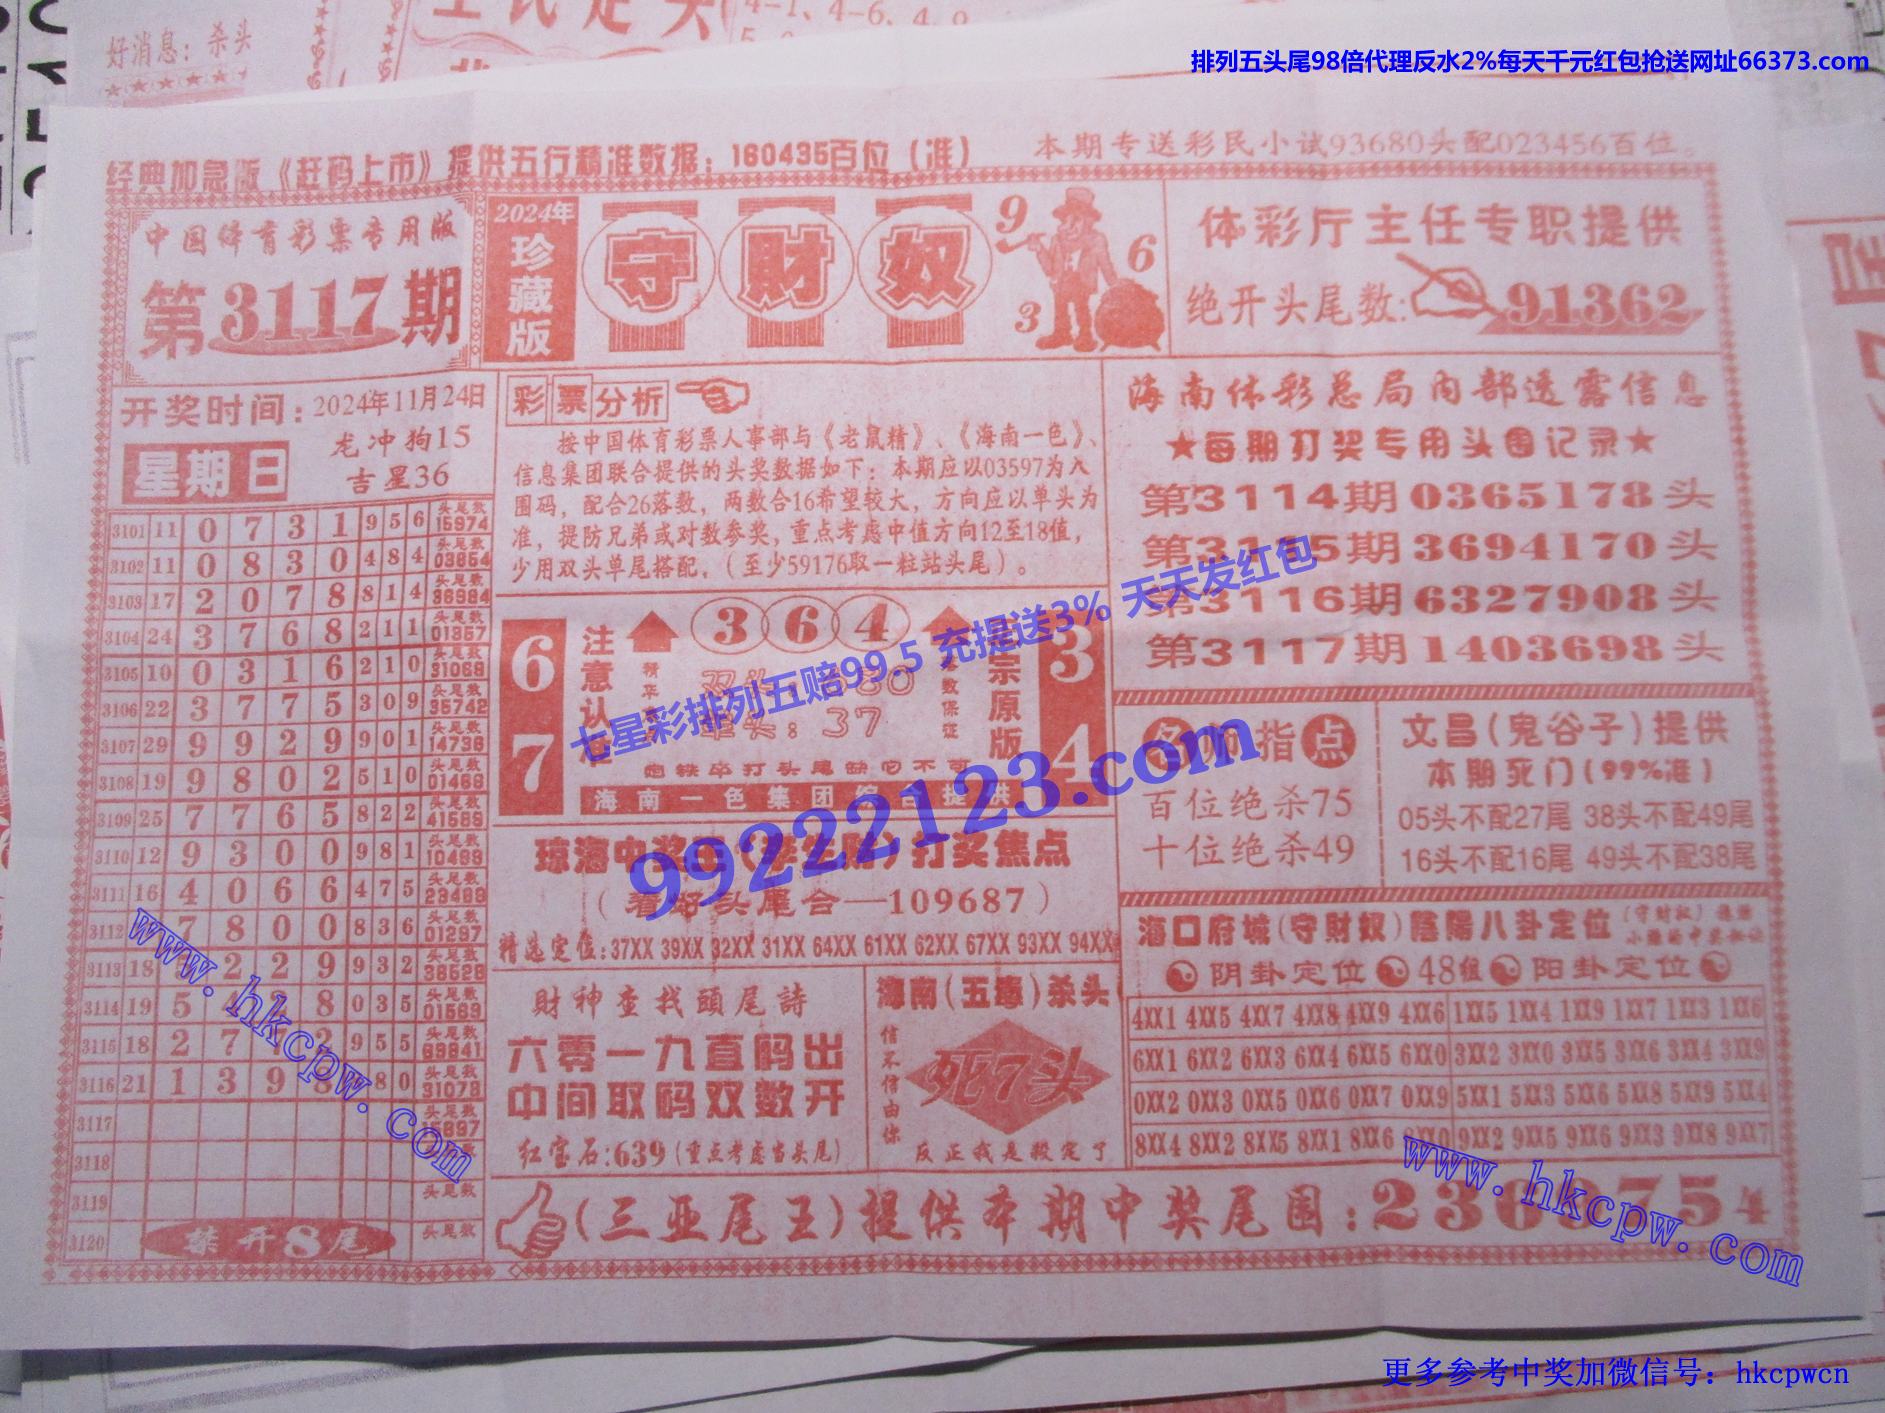 好消息: 杀头
4-1、4-6、4、9
排列五头尾98倍代理反水2%每天千元红包抢送网址66373.com
经典加急版《赶码上市》提供五行精准数据: 160435百位 (准)
本期专送彩民小试93680头配023456百位。
中国体育彩票专用版
第3117期
2024年
珍藏版
守財奴
9
6
3
体彩厅主任专职提供
绝开头尾数: 91362
开奖时间: 2024年11月24日
星期日
龙冲狗15
吉星36
3101 11 0 7 3 1 9 5 6 头尾数 15974
3102 11 0 8 3 0 4 8 4 头尾数 03654
3103 17 2 0 7 8 8 1 4 头尾数 36984
3104 24 3 7 6 8 2 1 1 头尾数 01357
3105 10 0 3 1 6 2 1 0 头尾数 31068
3106 22 3 7 7 5 3 0 9 头尾数 35742
3107 29 9 9 2 9 9 0 1 头尾数 14736
3108 19 9 8 0 2 5 1 0 头尾数 01466
3109 25 7 7 6 5 8 2 2 头尾数 41589
3110 12 9 3 0 0 9 8 1 头尾数 10499
3111 16 4 0 6 6 4 7 5 头尾数 23489
3112 7 8 0 0 8 3 6 头尾数 01297
3113 18 2 2 9 9 3 2 头尾数 38529
3114 19 5 4 8 0 3 5 头尾数 01569
3115 18 2 7 2 9 5 5 头尾数 69841
3116 21 1 3 9 8 8 0 头尾数 31078
3117 头尾数 15897
3118 头尾数
3119 头尾数
3120 头尾数
禁开8尾
彩票分析
按中国体育彩票人事部与《老鼠精》、《海南一色》、
信息集团联合提供的头奖数据如下: 本期应以03597为入
围码, 配合26落数, 两数合16希望较大, 方向应以单头为
准, 提防兄弟或对数参奖, 重点考虑中值方向12至18值,
少用双头单尾搭配, (至少59176取一粒站头尾)。
67
注意认准
364
单头: 37
正宗原版
34
海南一色集团综合提供
(看好头尾合—109687)
精选定位: 37XX 39XX 32XX 31XX 64XX 61XX 62XX 67XX 93XX 94XX
財神查找頭尾詩
六零一九直码出
中间取码双数开
红宝石: 639 (重点考虑当头尾)
海南 (五通) 杀头
信不信由你
死7头
反正我是殺定了
海南体彩总局内部透露信息
★每期打奖专用头围记录★
第3114期0365178头
第3115期3694170头
第3116期6327908头
第3117期1403698头
名师指点
百位绝杀75
十位绝杀49
文昌 (鬼谷子) 提供
本期死门 (99%准)
05头不配27尾 38头不配49尾
16头不配16尾 49头不配38尾
海口府城 (守财奴) 陰陽八卦定位
阴卦定位 48组 阳卦定位
4XX1 4XX5 4XX7 4XX8 4XX9 4XX6 1XX5 1XX4 1XX9 1XX7 1XX3 1XX6
6XX1 6XX2 6XX3 6XX4 6XX5 6XX0 3XX2 3XX0 3XX5 3XX6 3XX4 3XX9
0XX2 0XX3 0XX5 0XX6 0XX7 0XX9 5XX1 5XX3 5XX6 5XX8 5XX9 5XX4
8XX4 8XX2 8XX5 8XX1 8XX6 8XX0 9XX2 9XX5 9XX6 9XX3 9XX8 9XX7
(三亚尾王) 提供本期中奖尾围:
七星彩排列五赔99.5 充提送3% 天天发红包
99222123.com
www.hkcpw.com
www.hkcpw.com
更多参考中奖加微信号: hkcpwcn